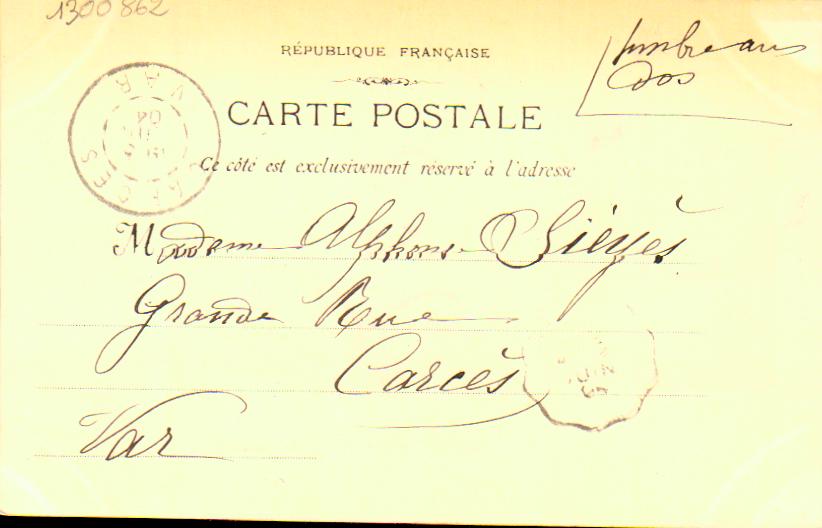 1300862
RÉPUBLIQUE FRANÇAISE
CARTE POSTALE
Ce côté est exclusivement réservé à l'adresse
timbre au
dos
CARCES
VAR
04
Madame Alphonse Sièyès
Grande Rue
Carcès
Var
JUIN